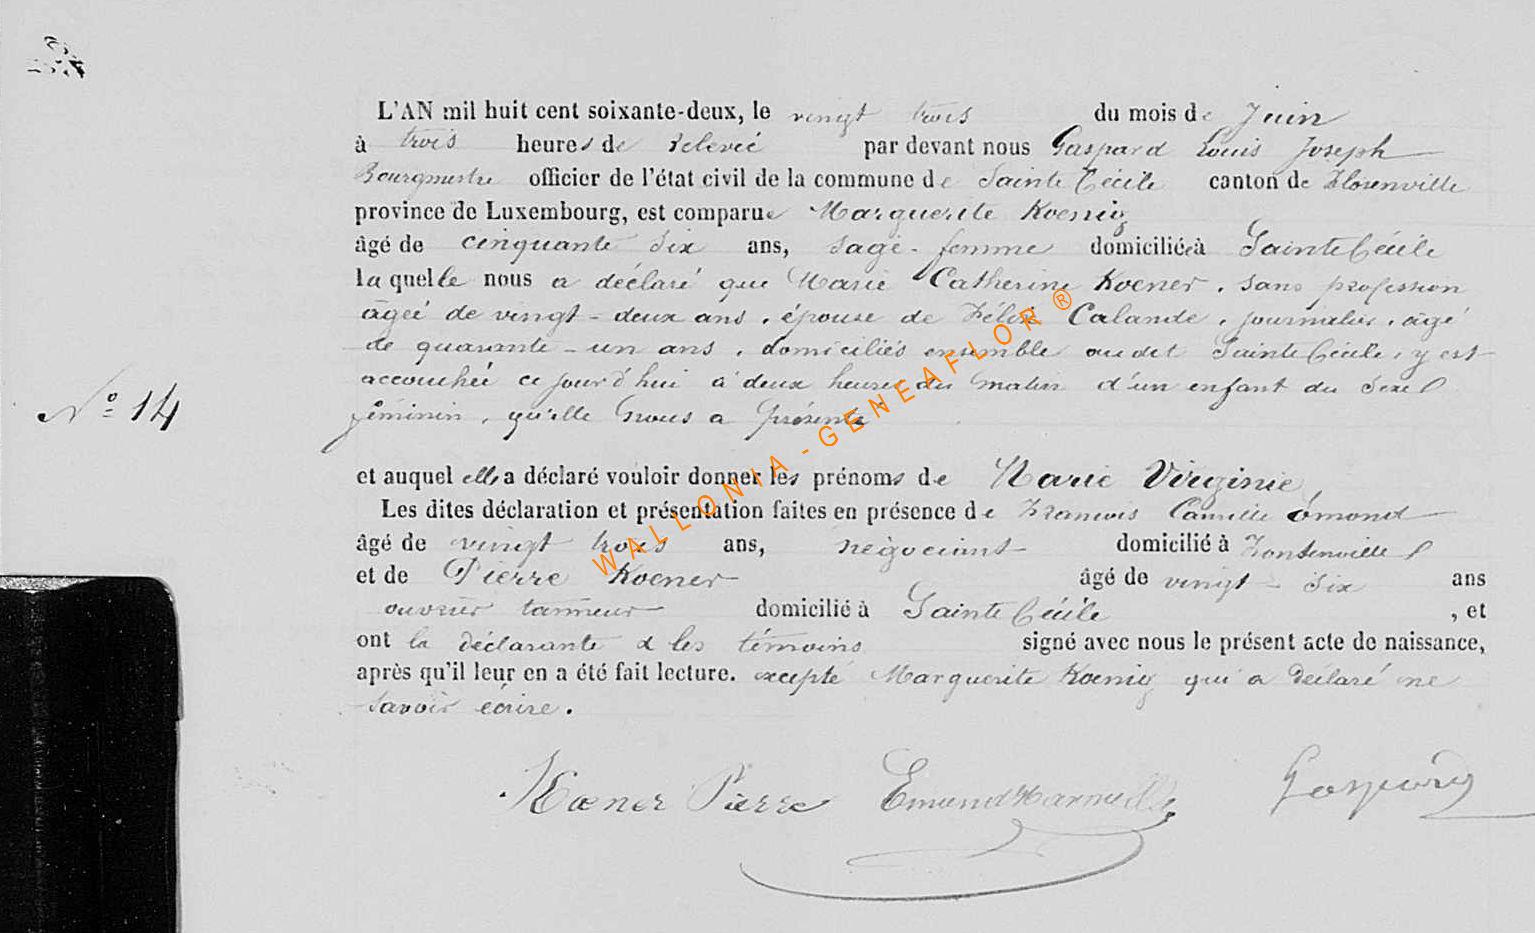 L'AN mil huit cent soixante-deux, le vingt trois du mois de Juin
à trois heures de relevée par devant nous Gaspard Louis Joseph
Bourgmestre officier de l'état civil de la commune de Sainte Cécile canton de Florenville
province de Luxembourg, est comparue Marguerite Koenig
âgé de cinquante six ans, sage-femme domiciliée à Sainte Cécile
laquelle nous a déclaré que Marie Catherine Koener, sans profession
âgée de vingt-deux ans, épouse de Félix Calande, journalier, âgé
de quarante-un ans, domiciliés ensemble audit Sainte Cécile, y est
accouchée ce jourd'hui à deux heures du matin d'un enfant du sexe
N° 14
féminin, qu'elle nous a présenté
et auquel elle a déclaré vouloir donner les prénoms de Marie Virginie
Les dites déclaration et présentation faites en présence de François Camille Emond
âgé de vingt trois ans, négociant domicilié à
et de Pierre Koener âgé de vingt-six ans
ouvrier tanneur domicilié à Sainte Cécile, et
ont la déclarante & les témoins signé avec nous le présent acte de naissance,
après qu'il leur en a été fait lecture. excepté Marguerite Koenig qui a déclaré ne
savoir écrire.
Koener Pierre Gaspard
WALLONIA - GENEAFLOR ®